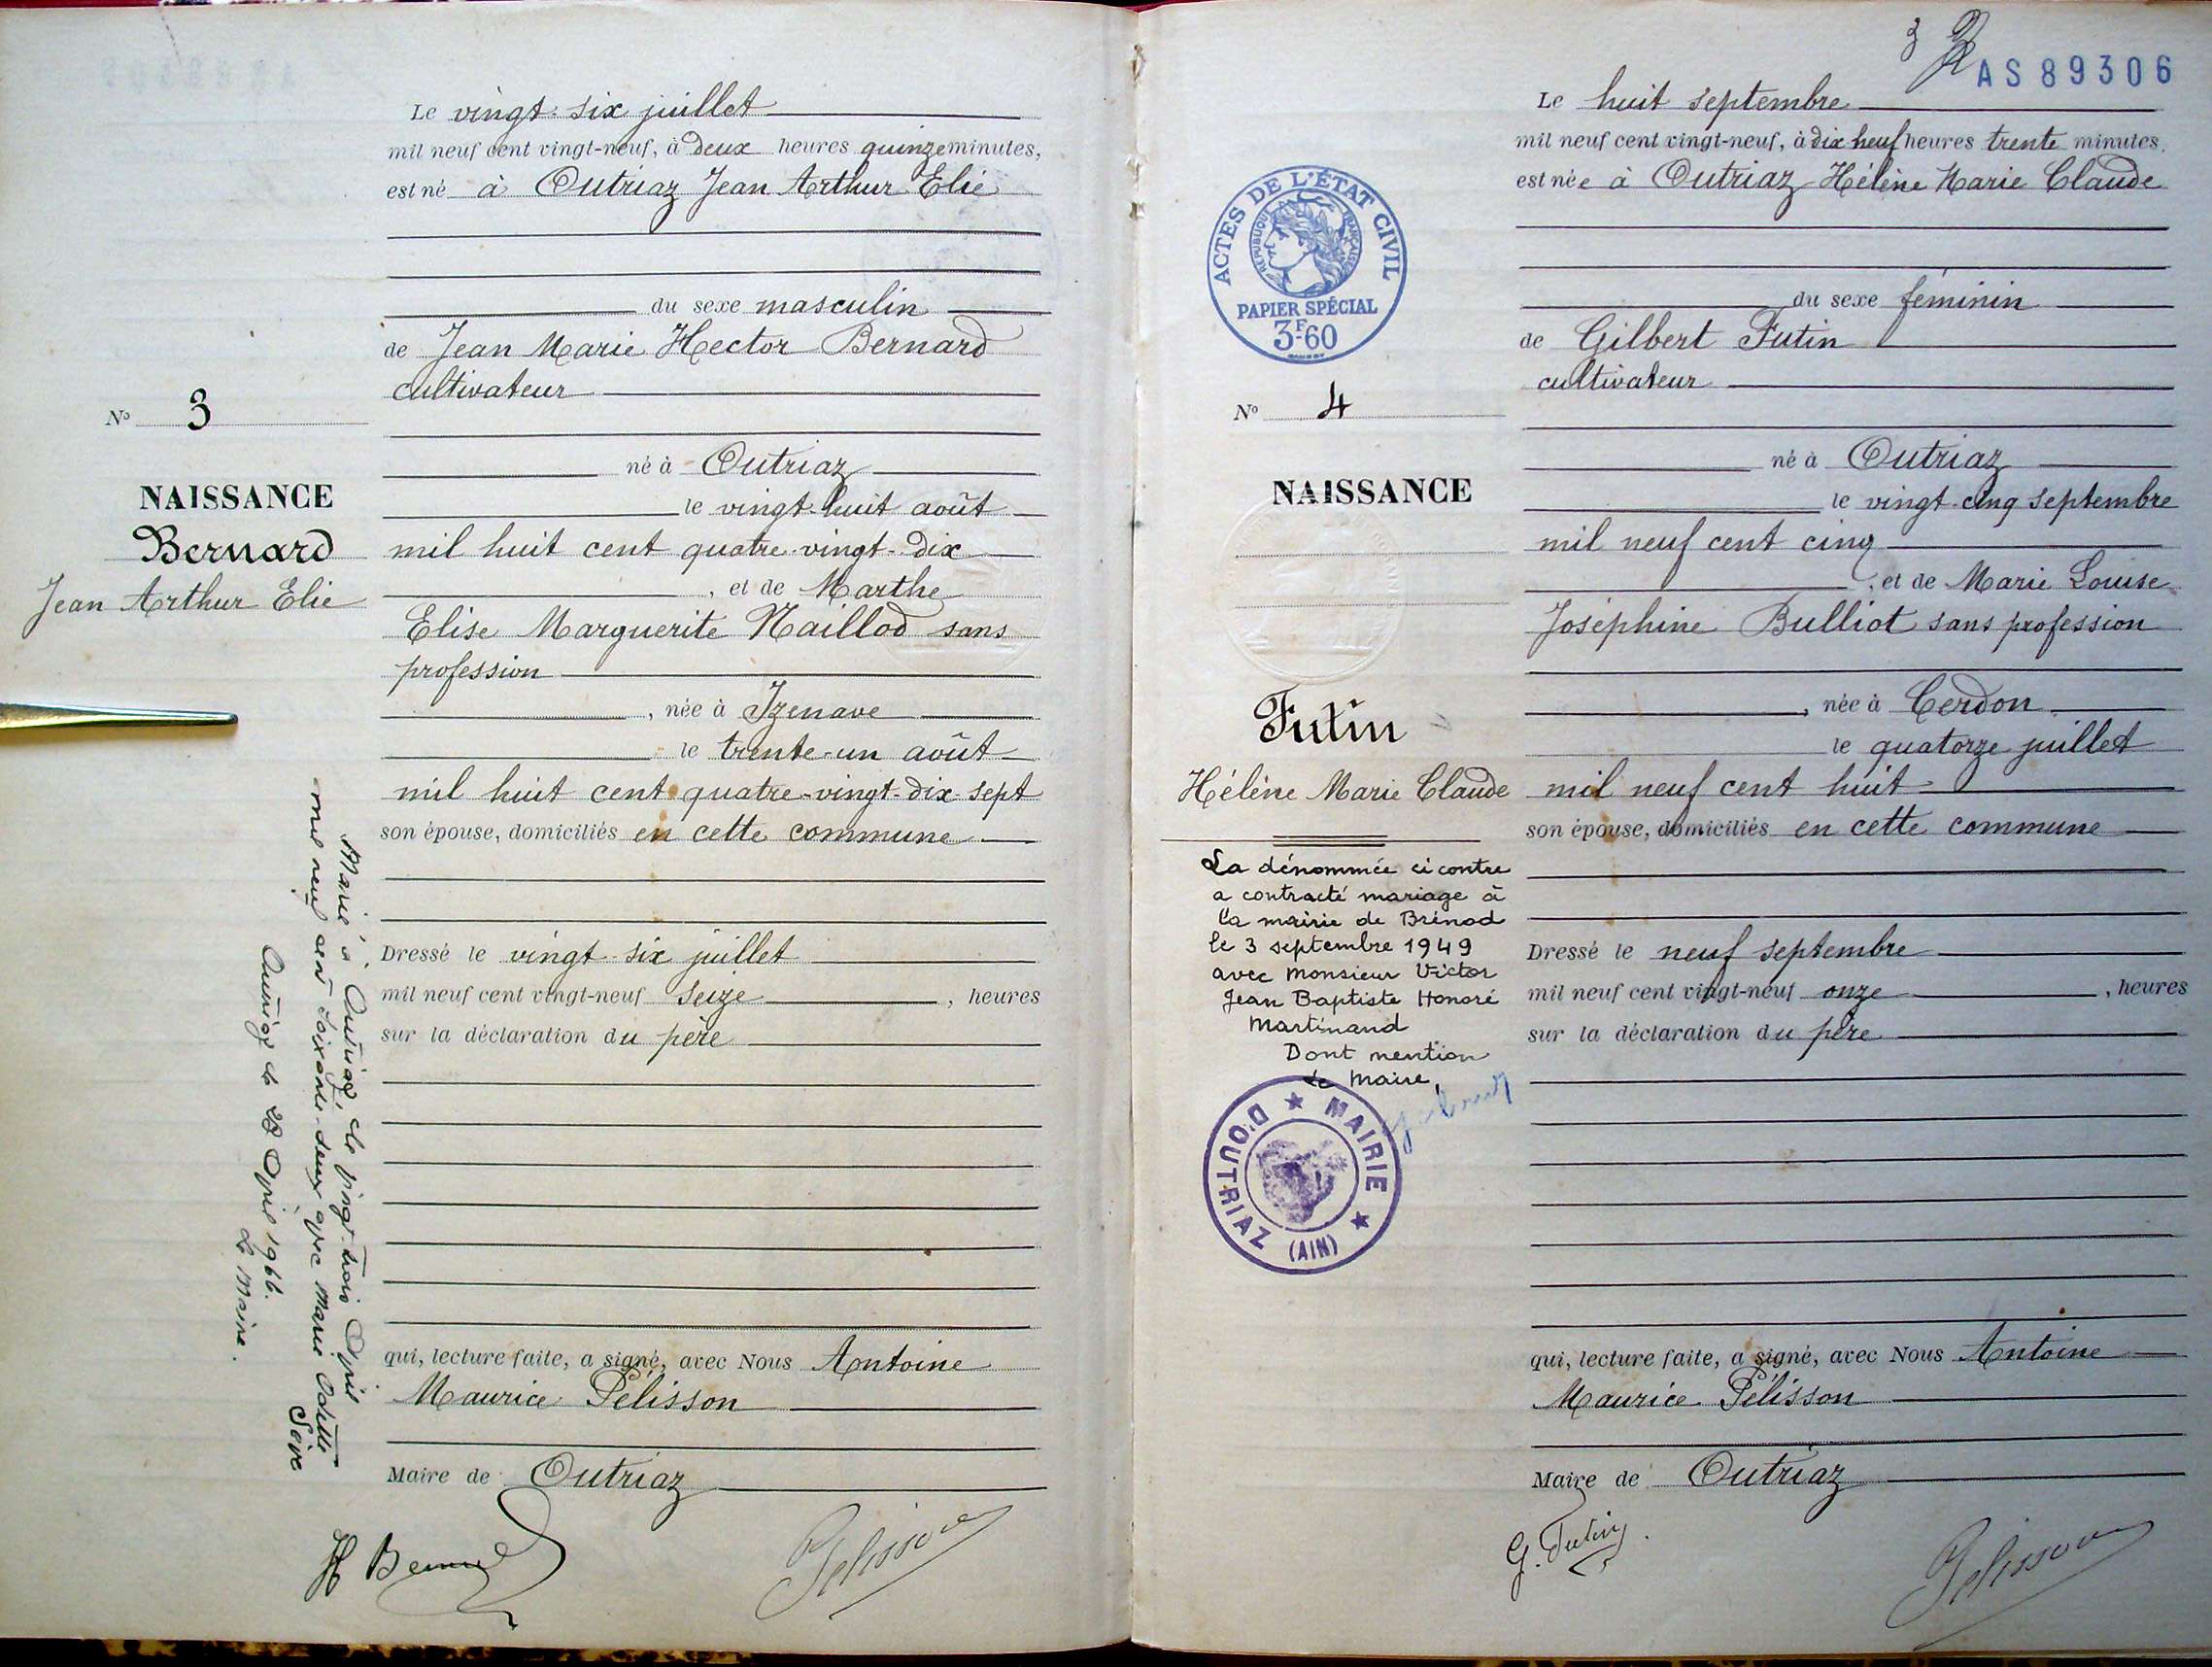 Le vingt-six juillet
mil neuf cent vingt-neuf, à deux heures quinze minutes,
est né à Outriaz Jean Arthur Elie
du sexe masculin
de Jean Marie Hector Bernard
cultivateur
né à Outriaz
le vingt-huit août
mil huit cent quatre-vingt-dix
, et de Marthe
Elise Marguerite Maillod sans
profession
, née à Izenave
le trente-un août
mil huit cent quatre-vingt-dix-sept
son épouse, domiciliés en cette commune
Dressé le vingt-six juillet
mil neuf cent vingt-neuf seize , heures
sur la déclaration du père
qui, lecture faite, a signé, avec Nous Antoine
Maurice Pélisson
Maire de Outriaz
H Bernard
Pelisson
N° 3
NAISSANCE
Bernard
Jean Arthur Elie
Marié à Outriaz, le vingt-trois Avril
mil neuf cent soixante-deux avec Marie Odette
Seive
Outriaz le 23 Avril 1966.
Le Maire.
3
AS 89306
Le huit septembre
mil neuf cent vingt-neuf, à dix neuf heures trente minutes,
est née à Outriaz Hélène Marie Claude
du sexe féminin
de Gilbert Futin
cultivateur
né à Outriaz
le vingt-cinq septembre
mil neuf cent cinq
, et de Marie Louise
Joséphine Bulliot sans profession
, née à Cerdon
le quatorze juillet
mil neuf cent huit
son épouse, domiciliés en cette commune
Dressé le neuf septembre
mil neuf cent vingt-neuf onze , heures
sur la déclaration du père
qui, lecture faite, a signé, avec Nous Antoine
Maurice Pélisson
Maire de Outriaz
G. Futin
Pelisson
ACTES DE L'ÉTAT CIVIL
RÉPUBLIQUE FRANÇAISE
PAPIER SPÉCIAL
3F60
N° 4
NAISSANCE
Futin
Hélène Marie Claude
La dénommée ci contre
a contracté mariage à
la mairie de Brénod
le 3 septembre 1949
avec Monsieur Victor
Jean Baptiste Honoré
Martinand
Dont mention
Le Maire,
MAIRIE D'OUTRIAZ
(AIN)